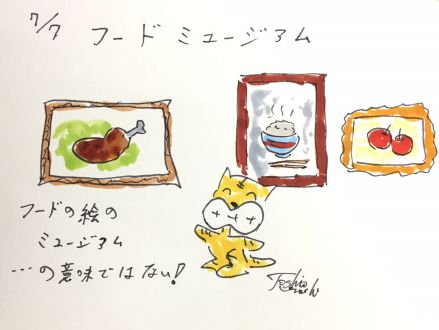 7/7 フードミュージアム
フードの絵の
ミュージアム
…の意味ではない!